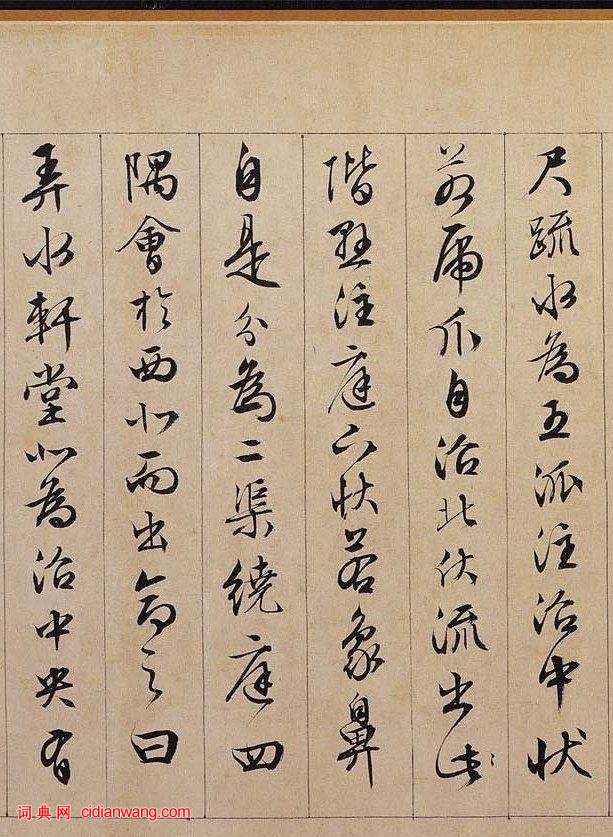 尺疏水為五派注沼中狀
若虎爪自沼北伏流出北
階懸注庭下狀若象鼻
自是分為二渠繞庭四
隅會於西北而出命之曰
弄水軒堂北為沼中央有
词典网 cidianwang.com